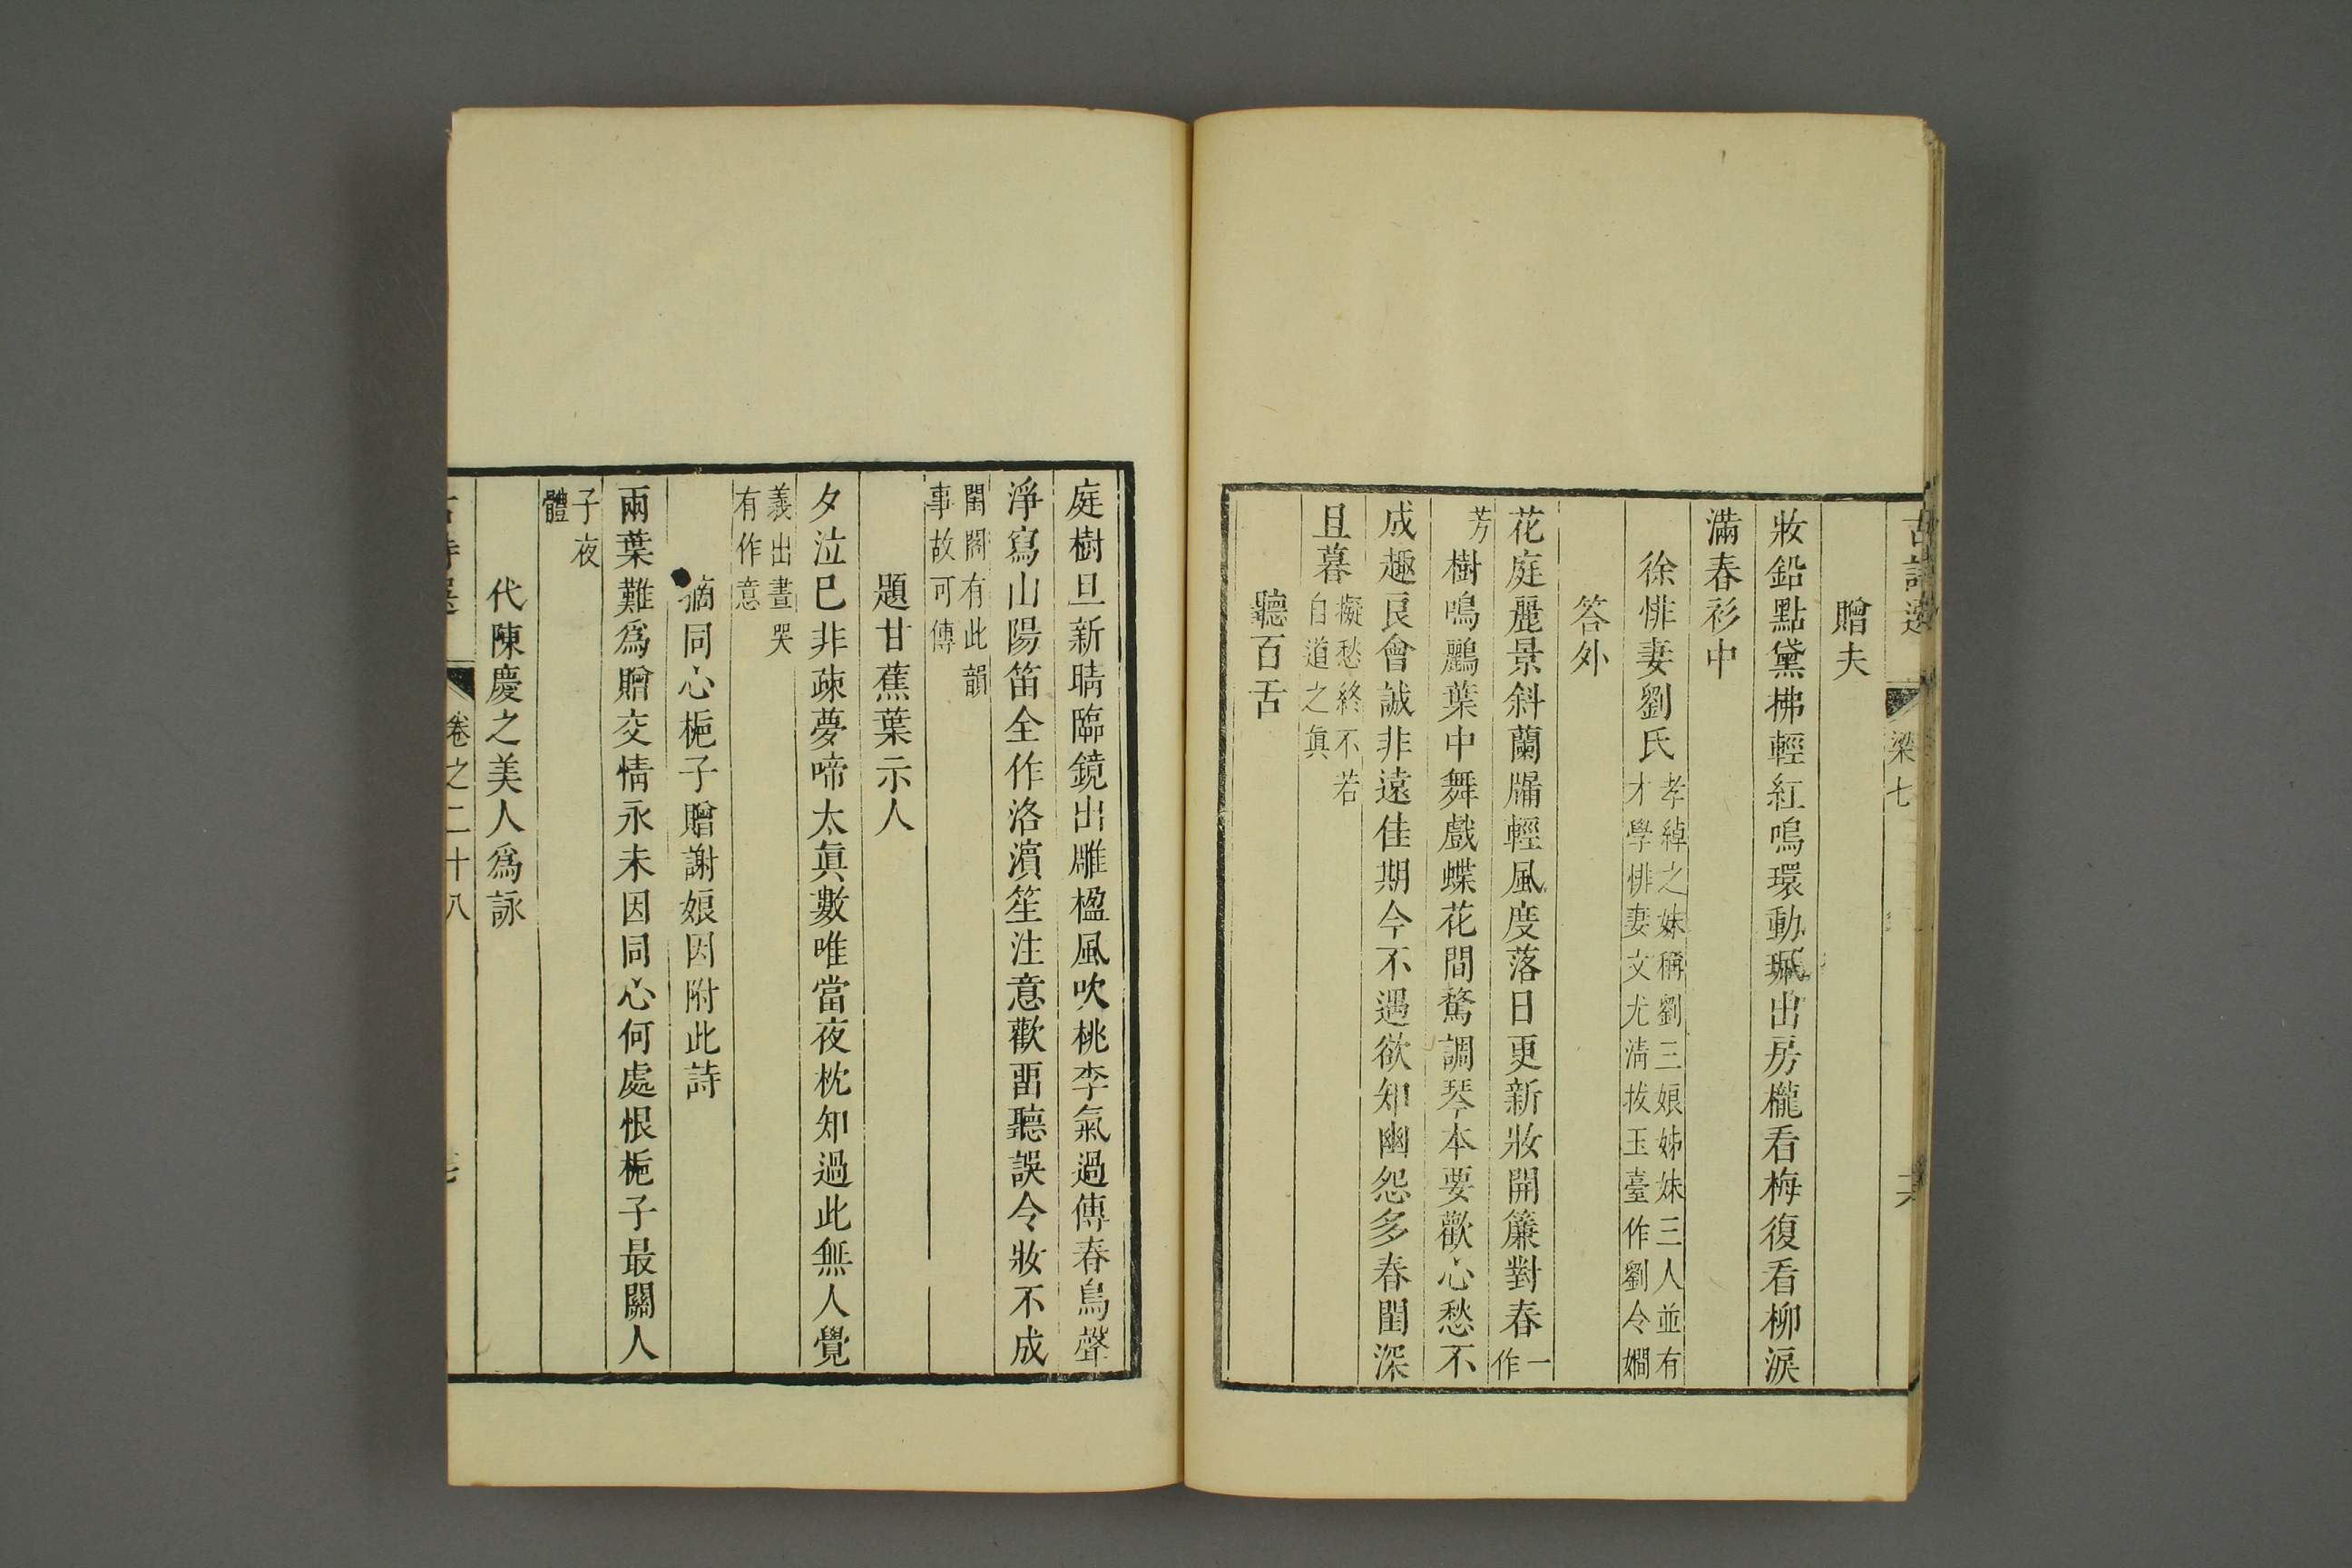 古詩選 梁七 六
贈夫
妝鉛點黛拂輕紅鳴環動珮出房櫳看梅復看柳淚
滿春衫中
徐悱妻劉氏孝綽之妹稱劉三娘姊妹三人並有才學悱妻文尤清拔玉臺作劉令嫺
答外
花庭麗景斜蘭牖輕風度落日更新妝開簾對春一作
芳樹鳴鸝葉中舞戲蝶花間騖調琴本要歡心愁不
成趣良會誠非遠佳期今不遇欲知幽怨多春閨深
且暮擬愁終不若自道之眞
聽百舌
庭樹旦新晴臨鏡出雕楹風吹桃李氣過傳春鳥聲
淨寫山陽笛全作洛濵笙注意歡畱聽誤令妝不成
閨閤有此韻事故可傳
題甘蕉葉示人
夕泣已非疎夢啼太眞數唯當夜枕知過此無人覺
義出晝哭有作意
摘同心梔子贈謝娘因附此詩
兩葉難爲贈交情永未因同心何處恨梔子最關人
子夜體
代陳慶之美人爲詠
卷之二十八